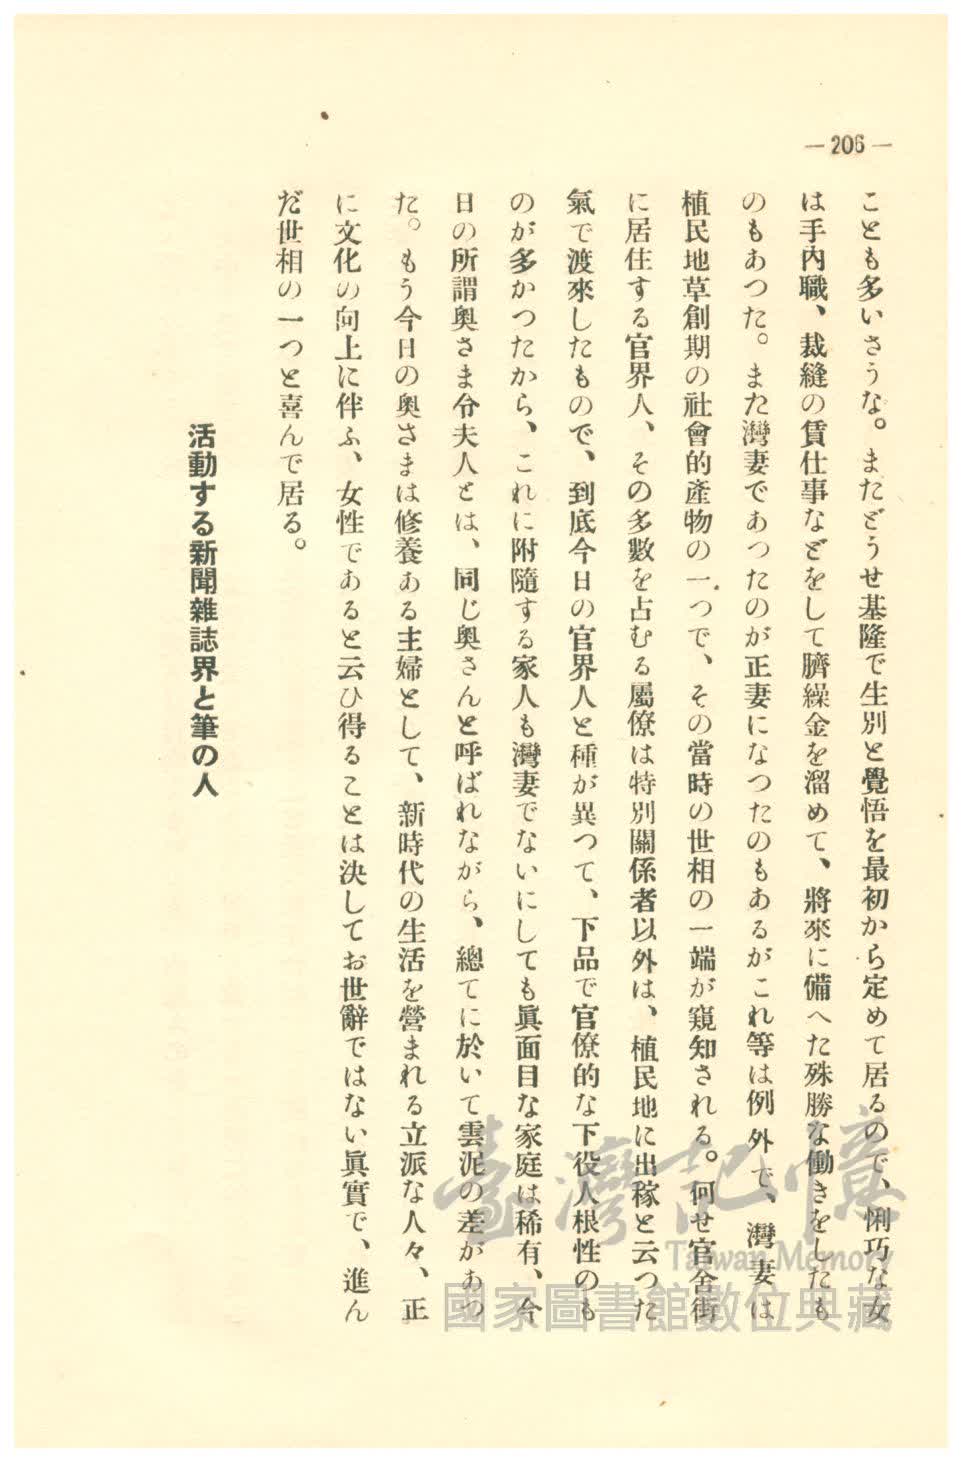 —206—
ことも多いさうな。まだどうせ基隆で生別と覺悟を最初から定めて居るので、悧巧な女
は手內職、裁縫の賃仕事などをして臍繰金を溜めて、將來に備へた殊勝な働きをしたも
のもあつた。また灣妻であつたのが正妻になつたのもあるがこれ等は例外で、灣妻は
植民地草創期の社會的產物の一つで、その當時の世相の一端が窺知される。何せ官舍街
に居住する官界人、その多數を占むる屬僚は特別關係者以外は、植民地に出稼と云つた
氣で渡來したもので、到底今日の官界人と種が異つて、下品で官僚的な下役人根性のも
のが多かつたから、これに附隨する家人も灣妻でないにしても眞面目な家庭は稀有、今
日の所謂奧さま令夫人とは、同じ奧さんと呼ばれながら、總てに於いて雲泥の差があつ
た。もう今日の奧さまは修養ある主婦として、新時代の生活を營まれる立派な人々、正
に文化の向上に伴ふ、女性であると云ひ得ることは決してお世辭ではない眞實で、進ん
だ世相の一つと喜んで居る。
活動する新聞雜誌界と筆の人
臺灣記憶
Taiwan Memory
國家圖書館數位典藏